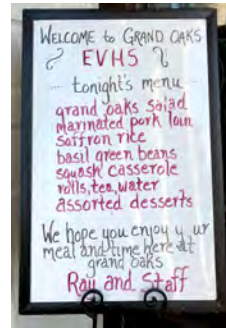 WELCOME to GRAND OAKS
EVHS
tonight's menu
grand oaks salad
marinated pork loin
saffron rice
basil green beans
squash casserole
rolls, tea, water
assorted desserts
We hope you enjoy y ur
meal and time here at
grand oaks
and Staff